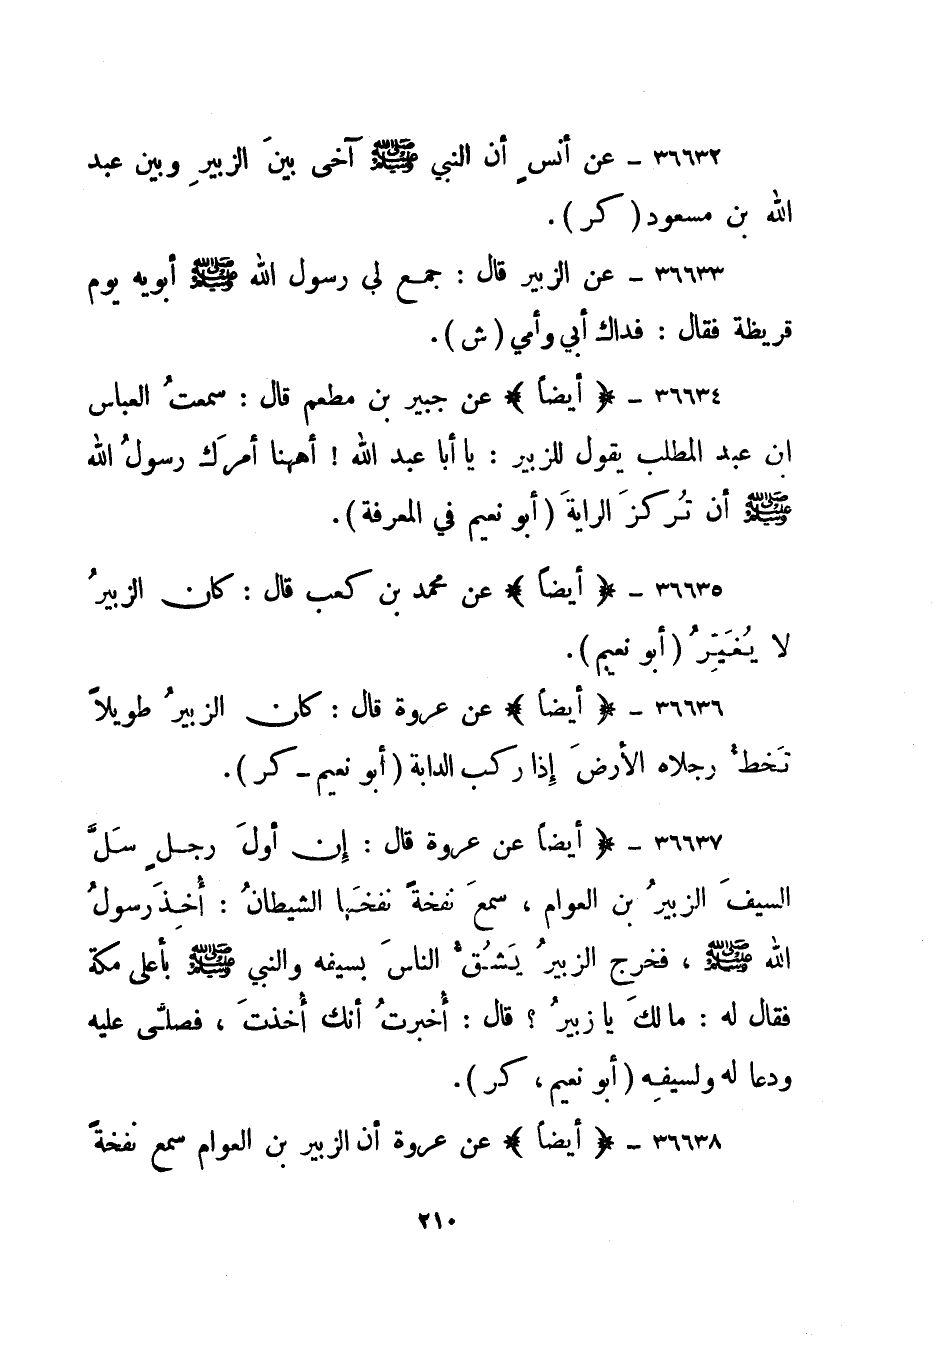 ٣٦٦٣٢ - عن أنسٍ أن النبي ﷺ آخى بينَ الزبيرِ وبين عبد
الله بن مسعود (كر).
٣٦٦٣٣ - عن الزبير قال : جمع لي رسول الله ﷺ أبويه يوم
قريظة فقال : فداك أبي وأمي (ش).
٣٦٦٣٤ - ﴿ أيضاً ﴾ عن جبير بن مطعم قال : سمعتُ العباس
ابن عبد المطلب يقول للزبير : يا أبا عبد الله ! أههنا أمرَك رسولُ الله
ﷺ أن تُركزَ الرايةَ (أبو نعيم في المعرفة).
٣٦٦٣٥ - ﴿ أيضاً ﴾ عن محمد بن كعب قال : كان الزبيرُ
لا يُغَيِّرُ (أبو نعيم).
٣٦٦٣٦ - ﴿ أيضاً ﴾ عن عروة قال : كان الزبيرُ طويلاً
تَخطُّ رجلاه الأرضَ إذا ركب الدابة (أبو نعيم - كر).
٣٦٦٣٧ - ﴿ أيضاً عن عروة قال : إن أولَ رجلٍ سَلَّ
السيفَ الزبيرُ بن العوام ، سمعَ نفخةً نفخَها الشيطانُ : أُخِذَ رسولُ
الله ﷺ ، فخرج الزبيرُ يَشُقُّ الناسَ بسيفه والنبي ﷺ بأعلى مكة
فقال له : مالكَ يا زبيرُ ؟ قال : أُخبرتُ أنك أُخذتَ ، فصلَّى عليه
ودعا له ولسيفِه (أبو نعيم ، كر).
٣٦٦٣٨ - ﴿ أيضاً ﴾ عن عروة أن الزبير بن العوام سمع نفخةً
٢١٠